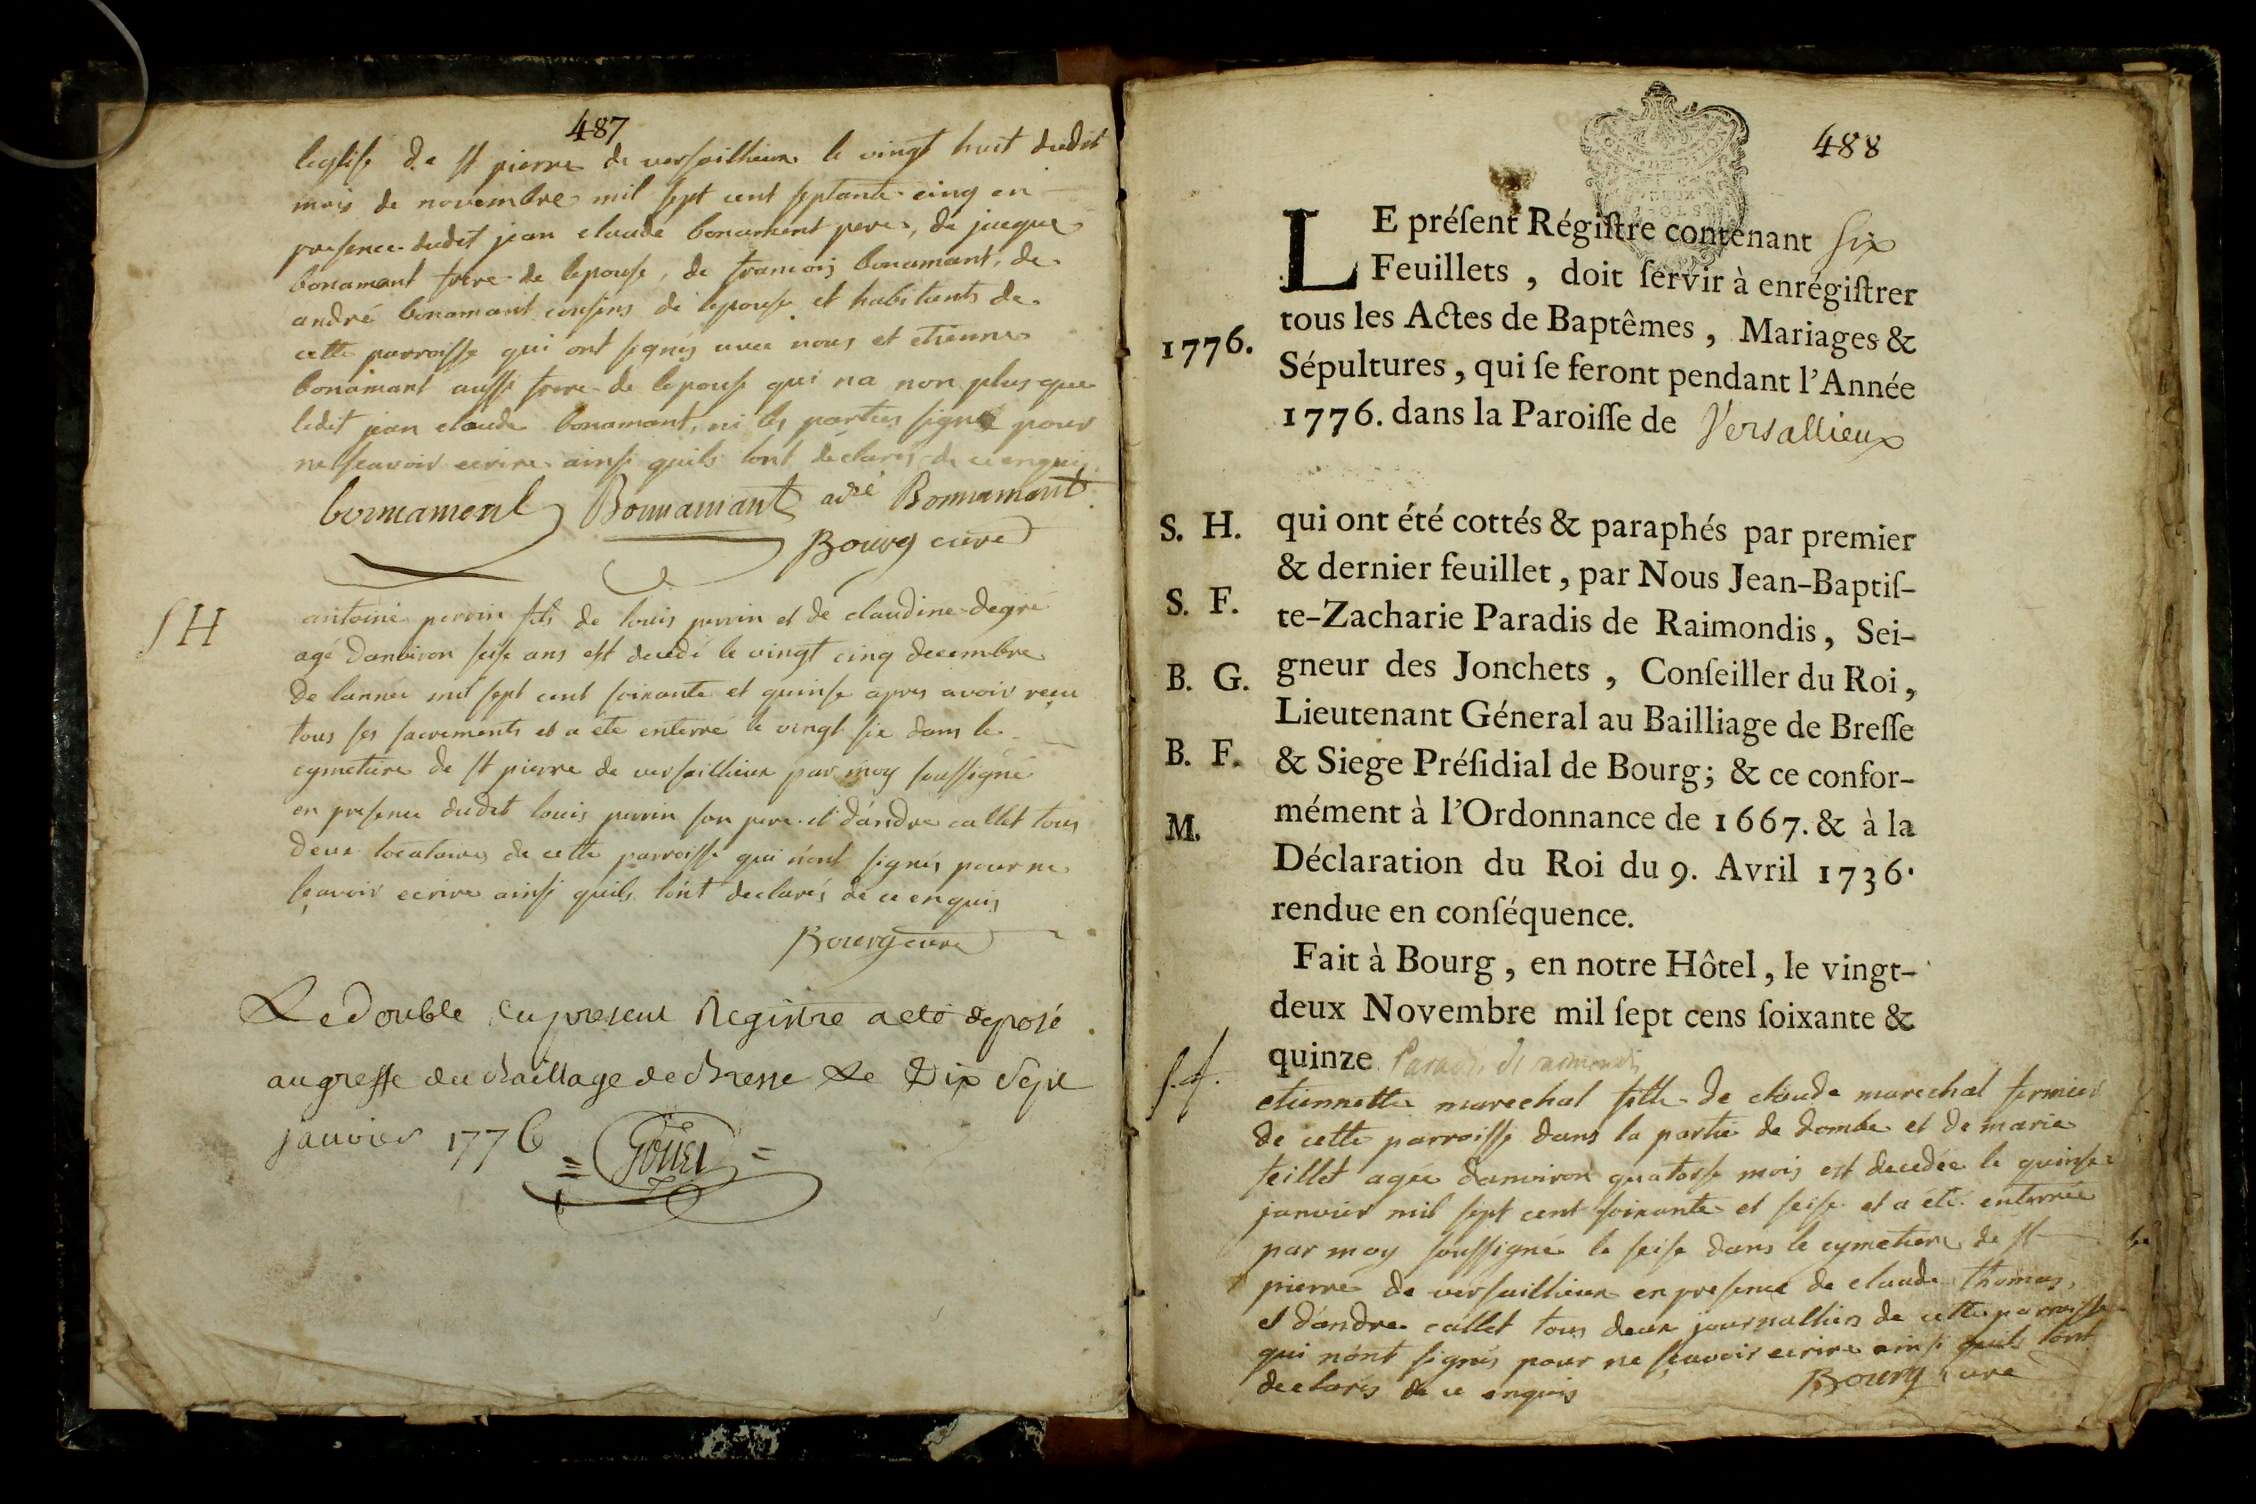 487
leglise de st pierre de versailleux le vingt huit dudit
mois de novembre mil sept cent septante cinq en
presence dudit jean claude bonamant pere, de jacque
bonamant frere de lepouse, de francois bonamant, de
andré bonamant cousins de lepouse et habitants de
cette parroisse qui ont signés avec nous et etienne
bonamant aussi frere de lepouse qui na non plus que
ledit jean claude bonamant, ni les parties signé pour
ne scavoir ecrire ainsi quils lont déclarés de ce enquis
bonnament Bonnamant adré Bonnamant
Bourg curé
SH
antoine perrin fils de louis perrin et de claudine degré
agé danviron seise ans est decedé le vingt cinq decembre
de lannee mil sept cent soixante et quinse apres avoir reçu
tous ses sacrements et a été enterré le vingt six dans le
cymetiere de st pierre de versailleux par moy soussigné
en presence dudit louis perrin son pere et dandré callet tous
deux locataires de cette parroisse qui nont signés pour ne
sçavoir ecrire ainsi quils lont declarés de ce enquis
Bourg curé
Le double du present Registre a eté deposé
au greffe du Baillage de Bresse Le Dix Sept
janvier 1776
488
LE préſent Régiſtre contenant six
Feuillets, doit ſervir à enrégiſtrer
tous les Actes de Baptêmes, Mariages &
1776.
Sépultures, qui ſe feront pendant l'Année
1776. dans la Paroiſſe de Versallieux
S. H.
qui ont été cottés & paraphés par premier
& dernier feuillet, par Nous Jean-Baptiſ-
S. F.
te-Zacharie Paradis de Raimondis, Sei-
B. G.
gneur des Jonchets, Conſeiller du Roi,
Lieutenant Géneral au Bailliage de Breſſe
B. F.
& Siege Préſidial de Bourg; & ce confor-
mément à l'Ordonnance de 1667. & à la
M.
Déclaration du Roi du 9. Avril 1736.
rendue en conſéquence.
Fait à Bourg, en notre Hôtel, le vingt-
deux Novembre mil ſept cens ſoixante &
quinze Paradis de raimondis
s.f.
etiennette marechal fille de claude marechal fermier
de cette parroisse dans la partie de dombe et de marie
teillet agée danviron quatorse mois est decedée le quinse
janvier mil sept cent soixante et seise et a été enterrée
par moy soussigné le seise dans le cymetiere de st
pierre de versailleux en presence de claude thomas,
et dandré callet tous deux journalliers de cette parroisse
qui nont signés pour ne sçavoir ecrire ainsi quils lont
declarés de ce enquis Bourg curé